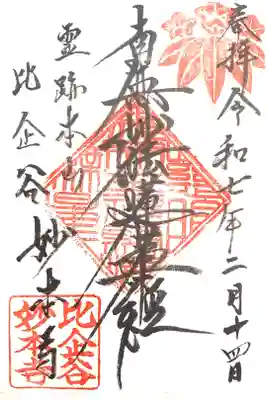 奉拝 令和七年二月十四日
南無妙法蓮華經
霊跡本山
比企谷妙本寺
比企谷
妙本寺